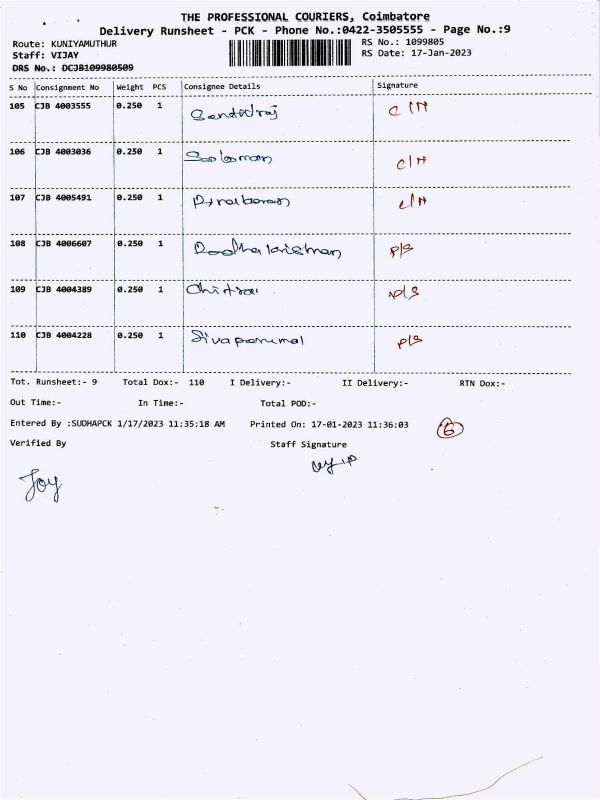 THE PROFESSIONAL COURIERS, Coimbatore
Delivery Runsheet - PCK - Phone No.:0422-3505555 - Page No.:9
Route: KUNIYAMUTHUR RS No.: 1099805
Staff: VIJAY RS Date: 17-Jan-2023
DRS No.: DCJB109980509
S No Consignment No Weight PCS Consignee Details Signature
105 CJB 4003555 0.250 1
106 CJB 4003036 0.250 1 Soloman C/H
107 CJB 4005491 0.250 1 C/H
108 CJB 4006607 0.250 1 Radhakrishnan P/S
109 CJB 4004389 0.250 1 P/S
110 CJB 4004228 0.250 1 Sivaperumal P/S
Tot. Runsheet:- 9 Total Dox:- 110 I Delivery:- II Delivery:- RTN Dox:-
Out Time:- In Time:- Total POD:-
Entered By :SUDHAPCK 1/17/2023 11:35:18 AM Printed On: 17-01-2023 11:36:03 6
Verified By Staff Signature
Joy